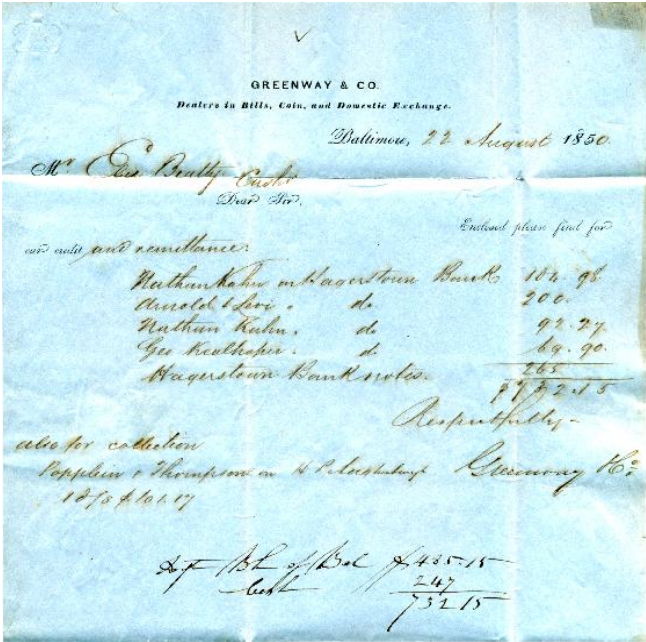 GREENWAY & CO.
Dealers in Bills, Coin, and Domestic Exchange.
Baltimore, 22 August 1850.
Mr Geo Beatty Cashr
Dear Sir,
Enclosed please find for
our credit and remittance.
Nathan Kahn on Hagerstown Bank 104.98
Arnold & Levi " do 200.
Nathan Kahn. do 92.27
Geo Kealhofer. do 69.90
Hagerstown Bank notes. 265
$732.15
Respectfully
also for collection
Popplein & Thompson on
Greenway & Co
$101.17
Bk of Bal $485.15
247
732 15